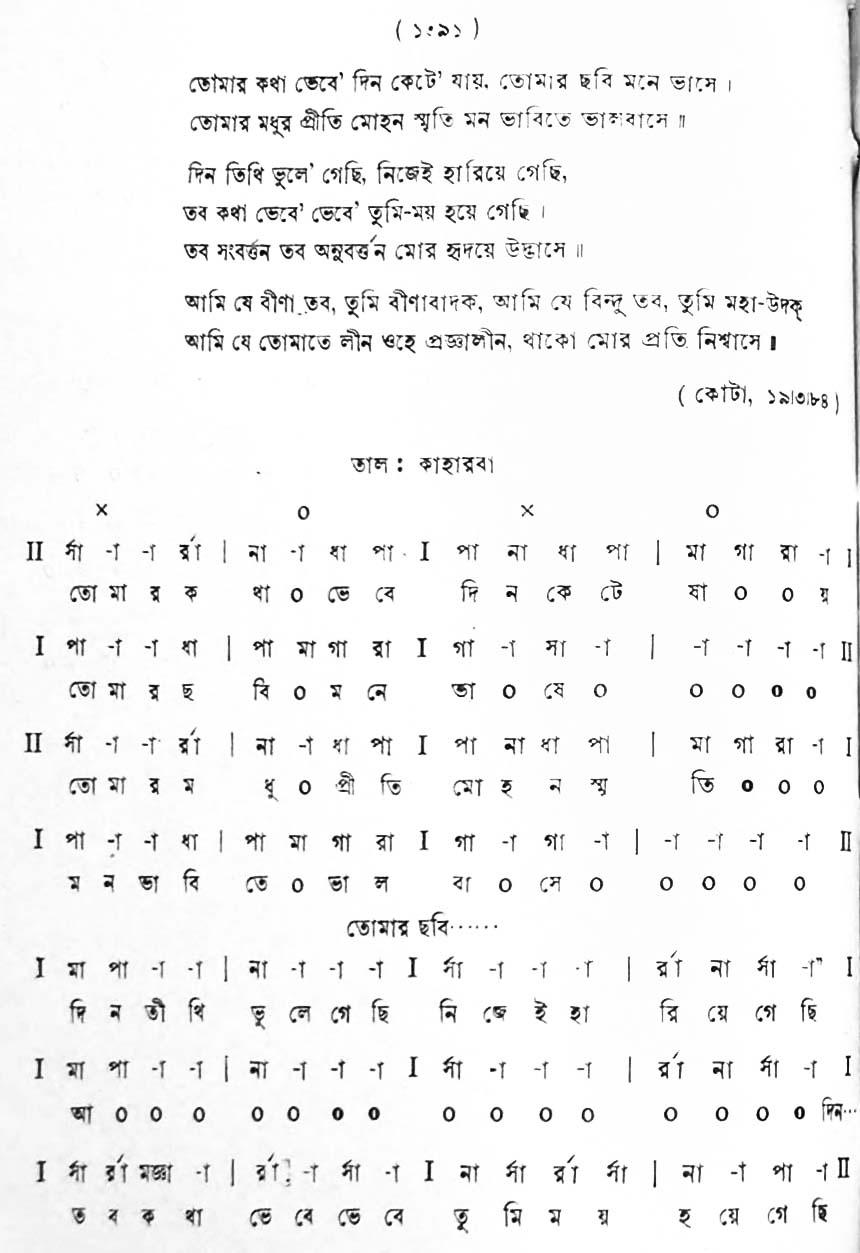 ( ১৩৯১ )
তোমার কথা ভেবে' দিন কেটে' যায়, তোমার ছবি মনে ভাসে ।
তোমার মধুর প্রীতি মোহন স্মৃতি মন ভাবিতে ভালবাসে ॥
দিন তিথি ভুলে' গেছি, নিজেই হারিয়ে গেছি,
তব কথা ভেবে' ভেবে' তুমি-ময় হয়ে গেছি ।
তব সংবর্ত্তন তব অনুবর্ত্তন মোর হৃদয়ে উদ্ভাসে ॥
আমি যে বীণা তব, তুমি বীণাবাদক, আমি যে বিন্দু তব, তুমি মহা-উদক্
আমি যে তোমাতে লীন ওহে প্রজ্ঞালীন, থাকো মোর প্রতি নিশ্বাসে ॥
( কোটা, ১৯।৩।৮৪ )
তাল : কাহারবা
× o × o
II র্সা -া -া র্রা | না -া ধা পা I পা না ধা পা | মা গা রা -া I
তো মা র ক থা o ভে বে দি ন কে টে যা o o য়
I পা -া -া ধা | পা মা গা রা I গা -া সা -া | -া -া -া -া II
তো মা র ছ বি o ম নে ভা o ষে o o o o o
II র্সা -া -া র্রা | না -া ধা পা I পা না ধা পা | মা গা রা -া I
তো মা র ম ধু o প্রী তি মো হ ন স্মৃ তি o o o
I পা -া -া ধা | পা মা গা রা I গা -া গা -া | -া -া -া -া II
ম ন ভা বি তে o ভা ল বা o সে o o o o o
তোমার ছবি······
I মা পা -া -া | না -া -া -া I র্সা -া -া -া | র্রা না র্সা -া I
দি ন তী থি ভু লে গে ছি নি জে ই হা রি য়ে গে ছি
I মা পা -া -া | না -া -া -া I র্সা -া -া -া | র্রা না র্সা -া I
আ o o o o o o o o o o o o o o o দিন···
I র্সা র্রা মজ্ঞা -া | র্রা -া র্সা -া I না র্সা র্রা র্সা | না -া পা -া II
ত ব ক থা ভে বে ভে বে তু মি ম য় হ য়ে গে ছি